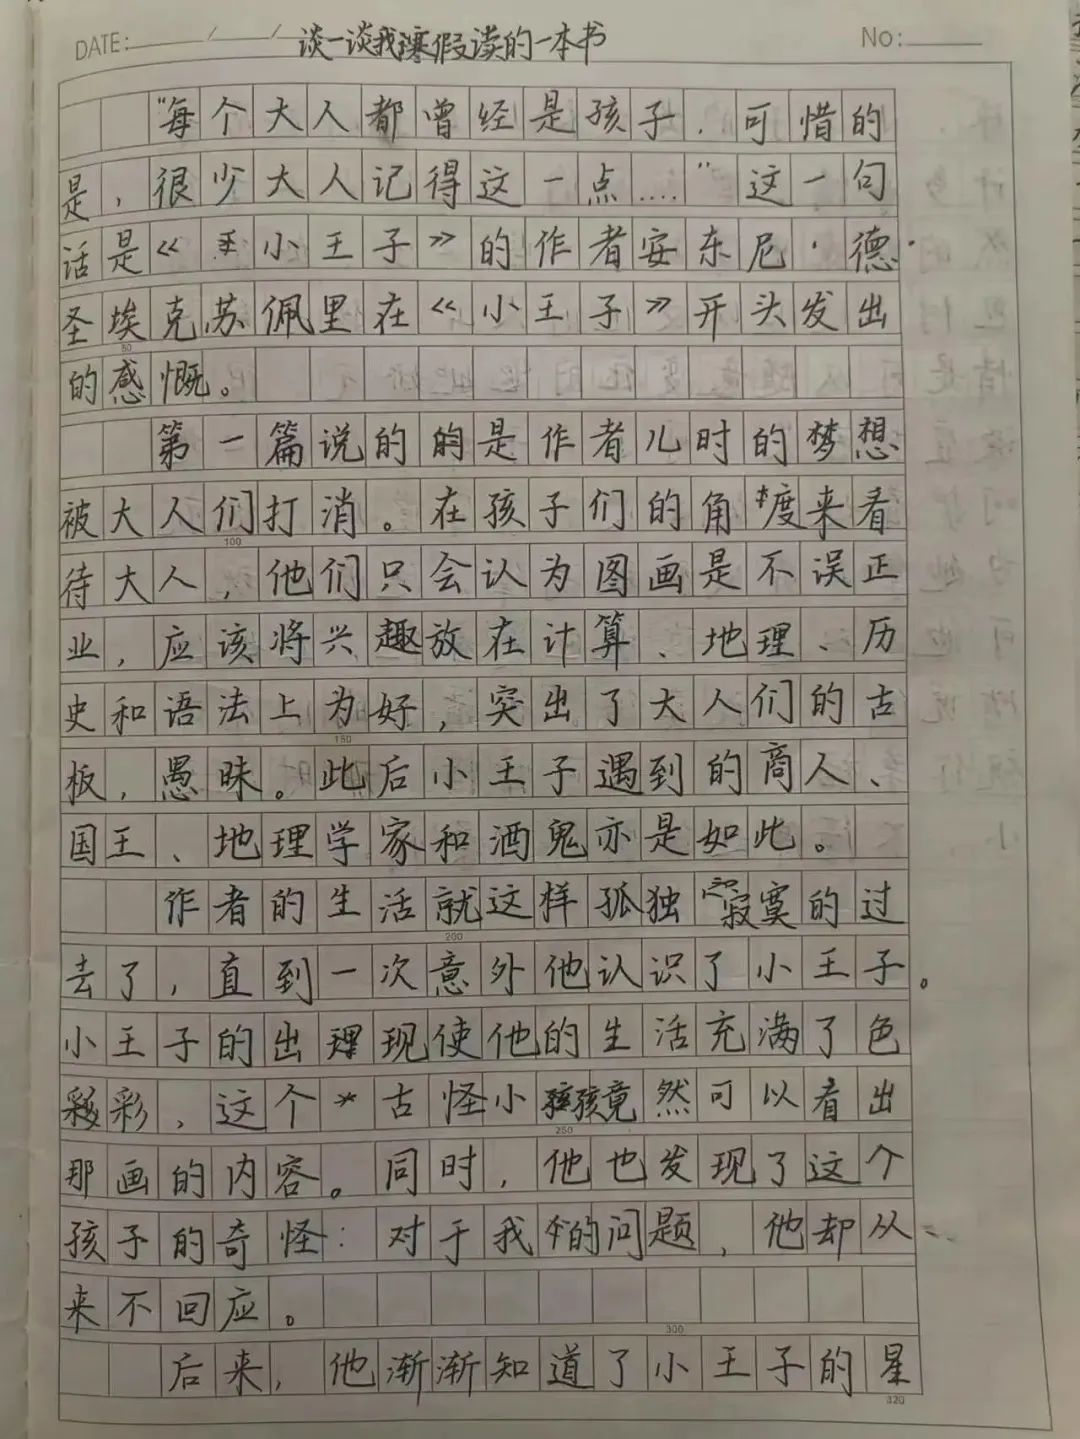 DATE: / / 谈一谈我寒假读的一本书 No:
“每个大人都曾经是孩子，可惜的
是，很少大人记得这一点....”这一句
话是《小王子》的作者安东尼·德·
圣埃克苏佩里在《小王子》开头发出
50
的感慨。
第一篇说的的是作者儿时的梦想
被大人们打消。在孩子们的角度来看
100
待大人，他们只会认为图画是不误正
业，应该将兴趣放在计算、地理、历
史和语法上为好，突出了大人们的古
150
板，愚昧。此后小王子遇到的商人、
国王、地理学家和酒鬼亦是如此。
作者的生活就这样孤独寂寞的过
200
去了，直到一次意外他认识了小王子。
小王子的出现使他的生活充满了色
彩，这个古怪小孩竟然可以看出
250
那画的内容。同时，他也发现了这个
孩子的奇怪：对于我的问题，他却从
来不回应。
300
后来，他渐渐知道了小王子的星
320